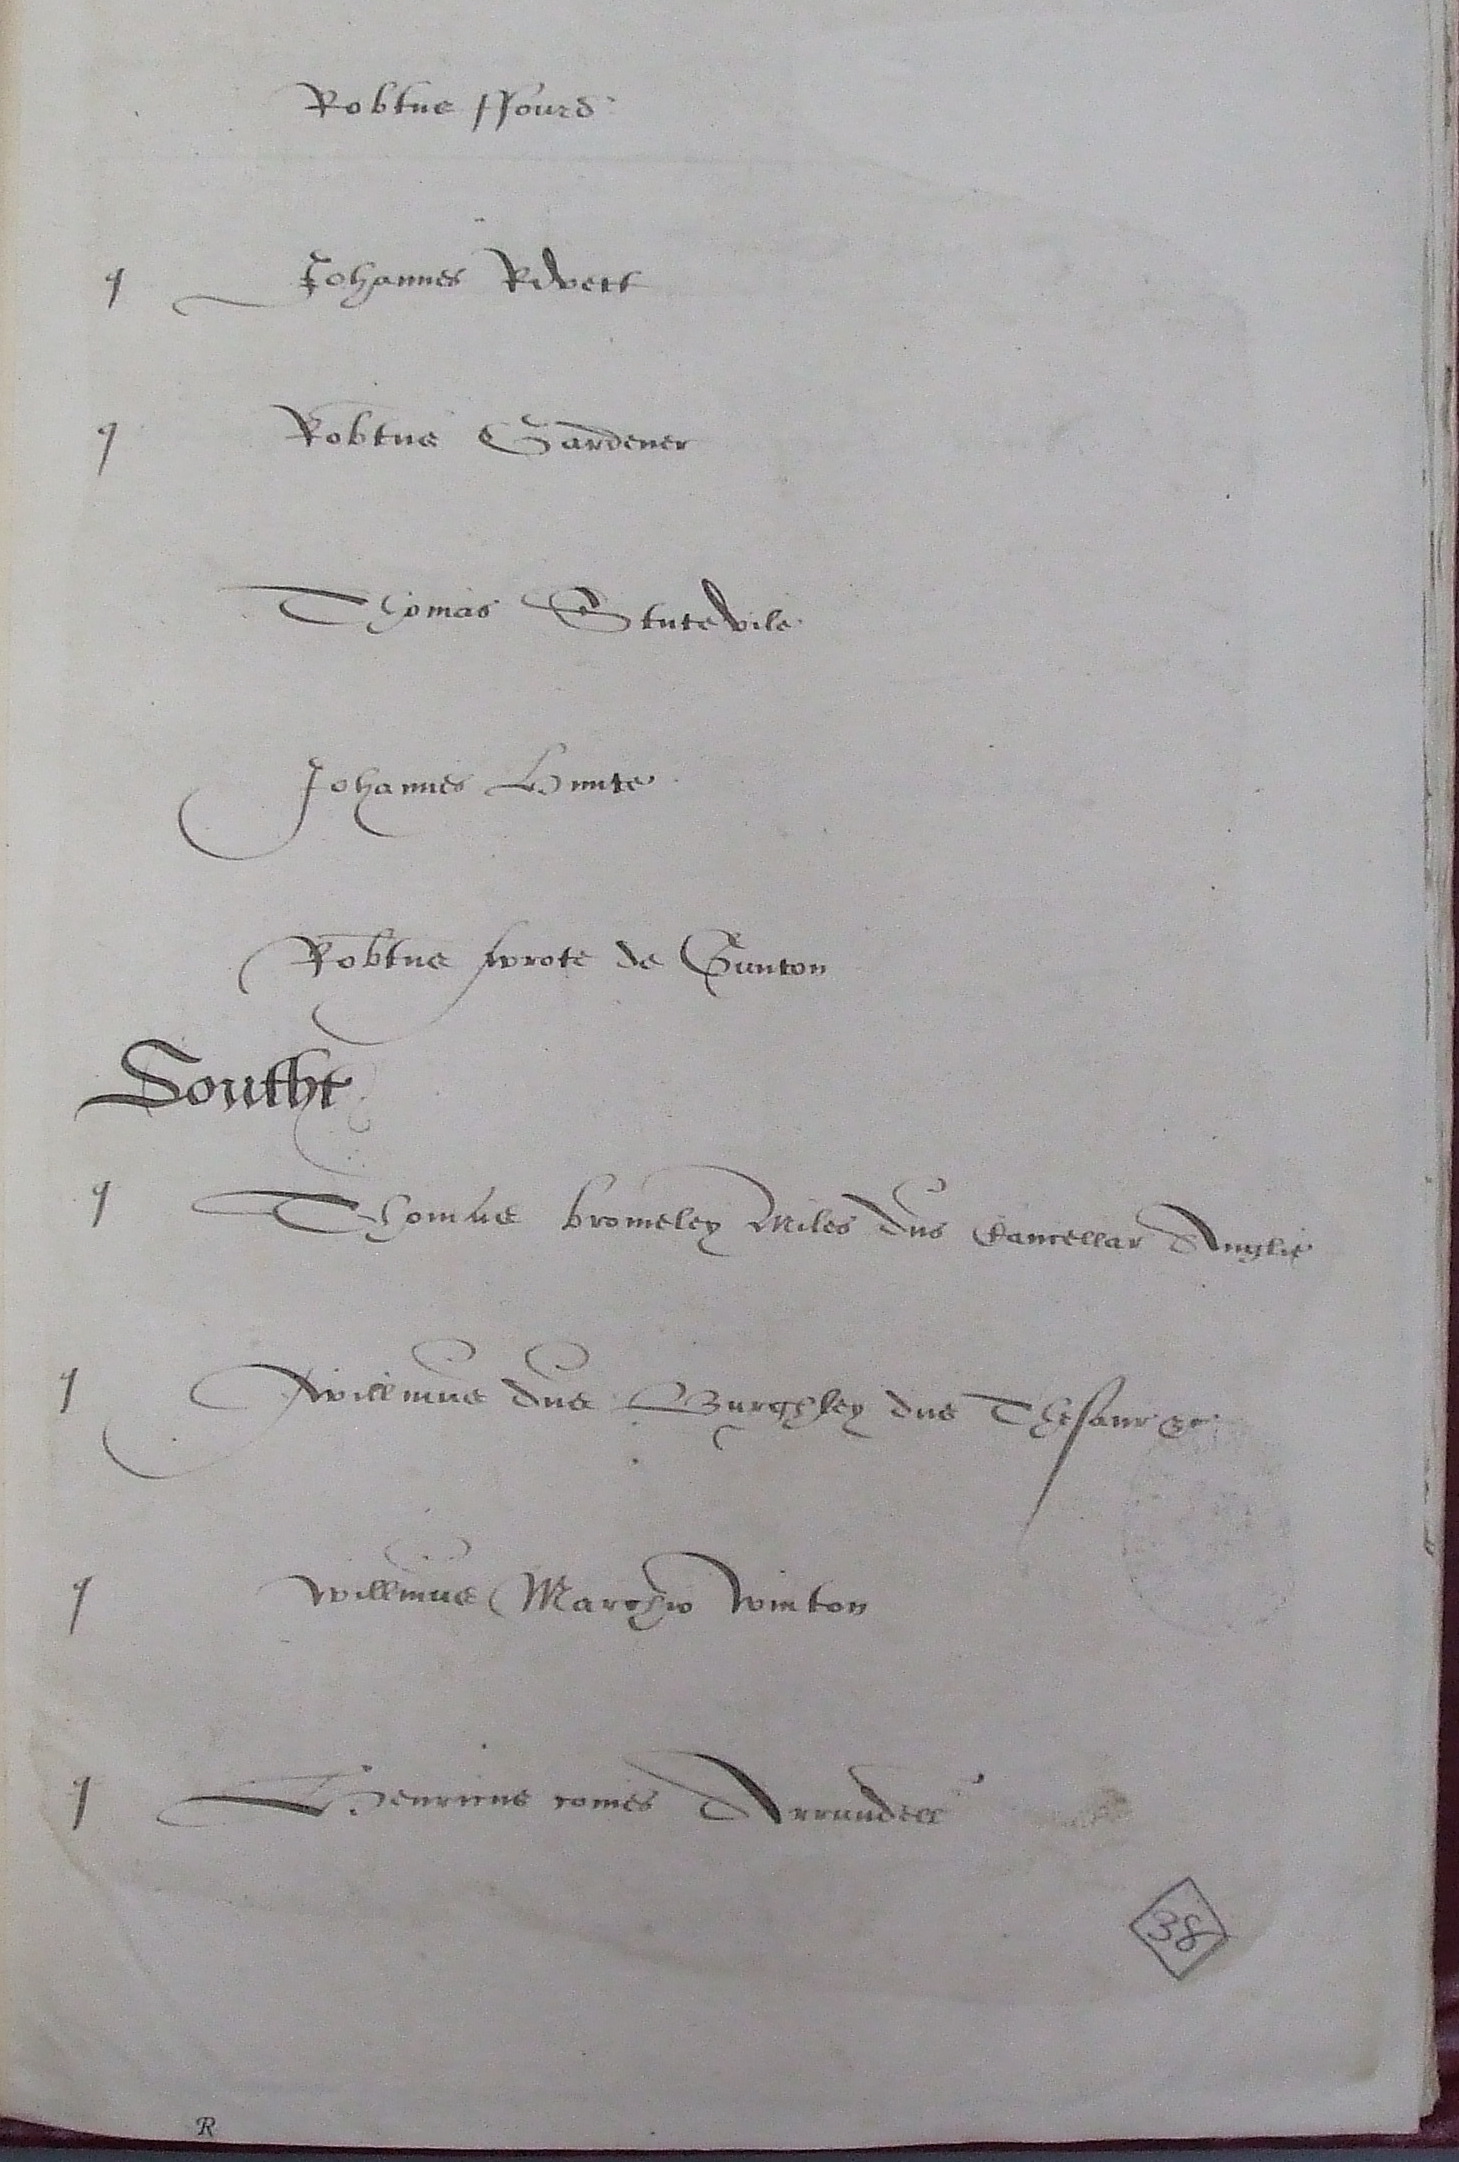 Robtus ffourd
q Johannes Rivett
q Robtus Gardener
Thomas Stutevile
Johannes Hunte
Robtus wrote de Gunton
Southt
q Thomas bromeley Miles dns Cancellar Anglie
q Willmus dns Burghley dns Thesaur &c
q Willmus Marchio Winton
q Henricus comes Arrundell
38
R